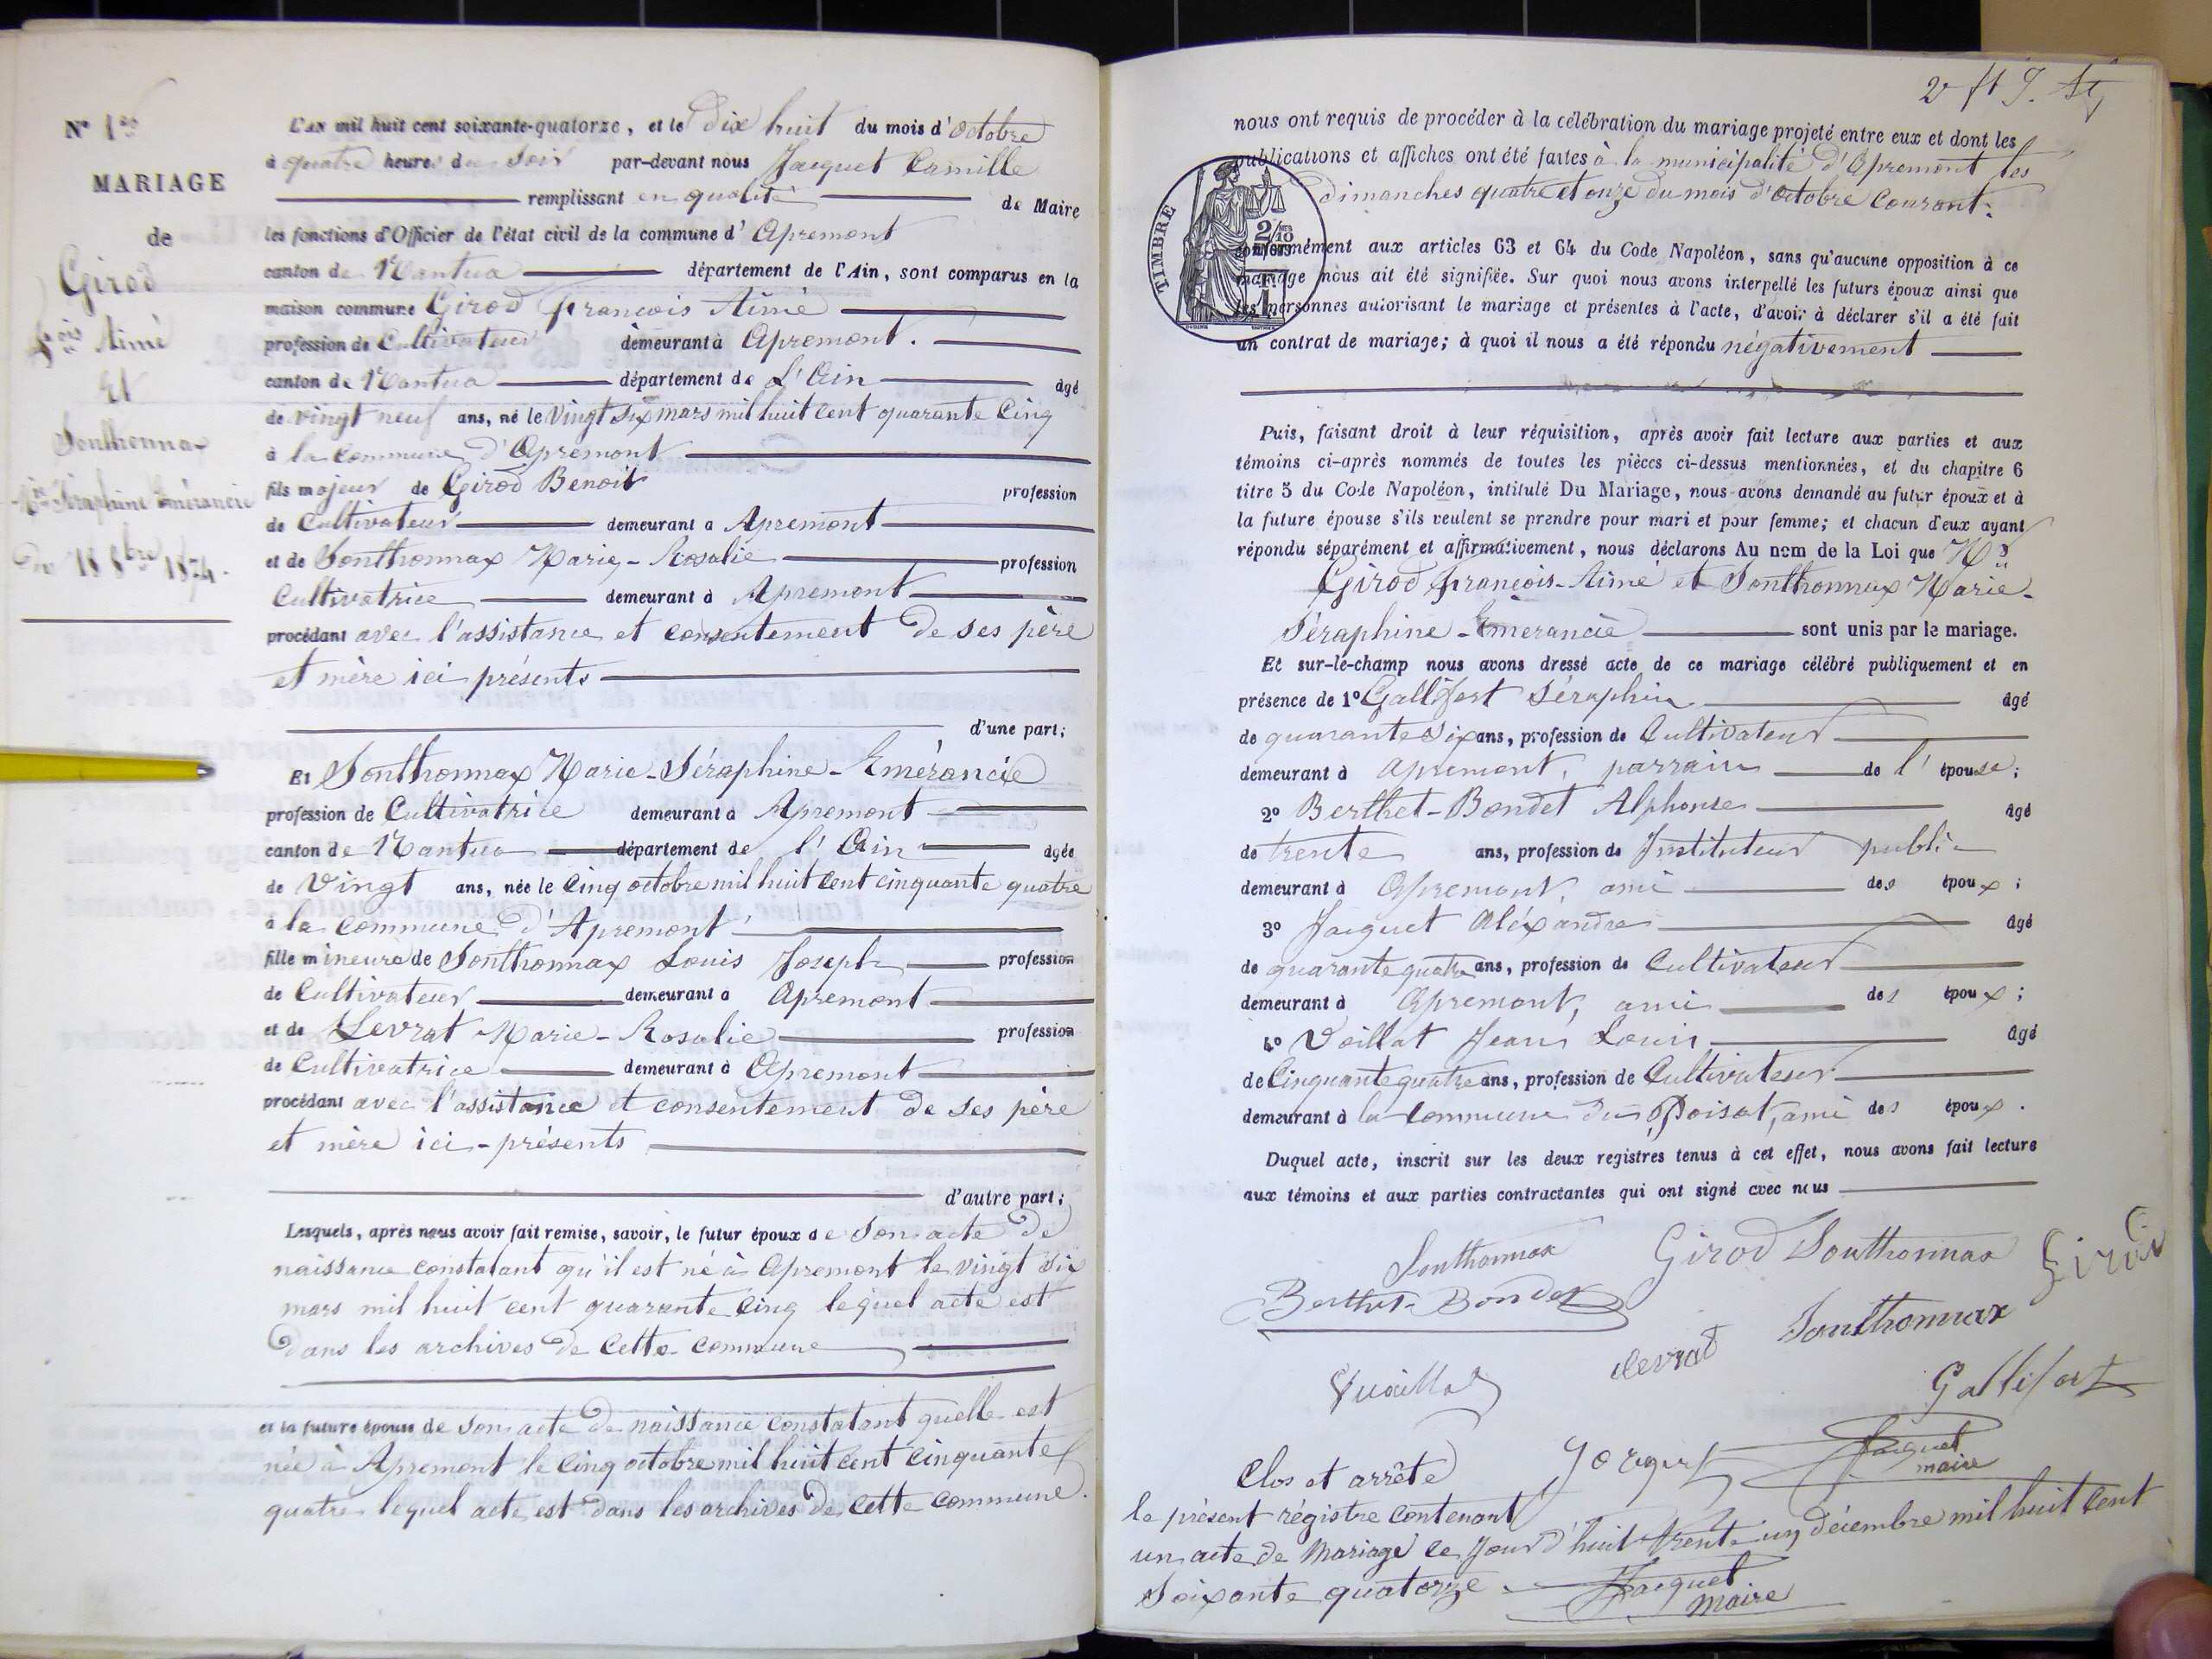 N° 1er
MARIAGE
de
Girod
fois Aimé
Et
Sonthonnax
Mie Séraphine Emérancie
Du 18 8bre 1874.
L'an mil huit cent soixante-quatorze, et le Dix huit du mois d'octobre
à quatre heures du soir par-devant nous Jacquet Camille
remplissant en qualité de Maire
les fonctions d'Officier de l'état civil de la commune d'Apremont
canton de Nantua département de l'Ain, sont comparus en la
maison commune Girod françois Aimé
profession de Cultivateur demeurant à Apremont.
canton de Nantua département de L'Ain âgé
de vingt neuf ans, né le Vingt six mars mil huit cent quarante Cinq
à la Commune d'Apremont
fils majeur de Girod Benoit profession
de Cultivateur demeurant à Apremont
et de Sonthonnax Marie-Rosalie profession
Cultivatrice demeurant à Apremont
procédant avec l'assistance et consentement de ses père
et mère ici présents
d'une part;
Et Sonthonnax Marie-Séraphine-Emérancie
profession de Cultivatrice demeurant à Apremont
canton de Nantua département de l'Ain âgée
de Vingt ans, née le Cinq octobre mil huit cent cinquante quatre
à la Commune d'Apremont
fille mineure de Sonthonnax Louis Joseph profession
de Cultivateur demeurant à Apremont
et de Levrat Marie-Rosalie profession
de Cultivatrice demeurant à Apremont
procédant avec l'assistance et consentement de ses père
et mère ici-présents
d'autre part;
Lesquels, après nous avoir fait remise, savoir, le futur époux de son acte de
naissance constatant qu'il est né à Apremont le vingt six
mars mil huit cent quarante Cinq lequel acte est
Dans les archives de Cette Commune
et la future épouse de son acte de naissance constatant quelle est
née à Apremont le Cinq octobre mil huit cent Cinquante
quatre lequel acte est dans les archives de Cette Commune.
nous ont requis de procéder à la célébration du mariage projeté entre eux et dont les
publications et affiches ont été faites à la municipalité d'Apremont les
dimanches quatre et onze du mois d'Octobre Courant.
TIMBRE
2/10
conformément aux articles 63 et 64 du Code Napoléon, sans qu'aucune opposition à ce
mariage nous ait été signifiée. Sur quoi nous avons interpellé les futurs époux ainsi que
les personnes autorisant le mariage et présentes à l'acte, d'avoir à déclarer s'il a été fait
un contrat de mariage; à quoi il nous a été répondu négativement
Puis, faisant droit à leur réquisition, après avoir fait lecture aux parties et aux
témoins ci-après nommés de toutes les pièces ci-dessus mentionnées, et du chapitre 6
titre 5 du Code Napoléon, intitulé Du Mariage, nous avons demandé au futur époux et à
la future épouse s'ils veulent se prendre pour mari et pour femme; et chacun d'eux ayant
répondu séparément et affirmativement, nous déclarons Au nom de la Loi que
Girod françois-Aimé et Sonthonnax Marie-
Séraphine-Emerancie sont unis par le mariage.
Et sur-le-champ nous avons dressé acte de ce mariage célébré publiquement et en
présence de 1° Gallifort Séraphin âgé
de quarante six ans, profession de Cultivateur
demeurant à Apremont, parrain de l'épouse;
2° Berthet-Bondet Alphonse âgé
de trente ans, profession de Instituteur public
demeurant à Apremont, ami des époux;
3° Jacquet Aléxandre âgé
de quarante quatre ans, profession de Cultivateur
demeurant à Apremont, ami des époux;
4° Voillat Jean Louis âgé
de Cinquante quatre ans, profession de Cultivateur
demeurant à la Commune du Poisat, ami des époux.
Duquel acte, inscrit sur les deux registres tenus à cet effet, nous avons fait lecture
aux témoins et aux parties contractantes qui ont signé avec nous
Sonthonnax Girod Sonthonnax Girod
Berthet-Bondet
Sonthonnax
Levrat
Vuaillat
Gallifort
Jacquet
Jacquet
maire
Clos et arrêté
le présent régistre Contenant
un acte de Mariage ce jour d'huit trente un décembre mil huit Cent
Soixante quatorze.
Jacquet
Maire